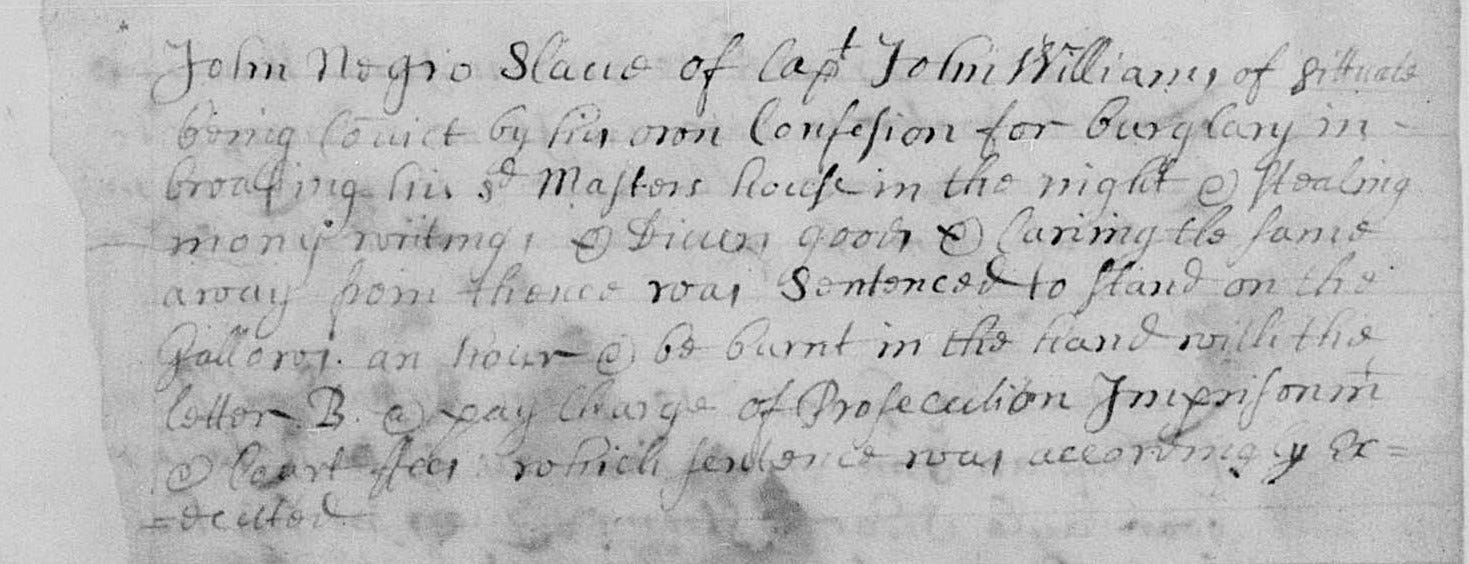 John Negro Slaue of Capt John Williams of Sittuate
being Cōuict by his own Confesion for burglary in -
breaking his sd Masters house in the night & Stealing
mony writings & Diuers goods & Caring the same
away from thence was Sentenced to stand on the
Gallows an hour & be burnt in the hand with the
letter B. & pay Charge of Prosecution Imprisonmt
& Court ffees which sentence was accordingly Ex=
=ecuted